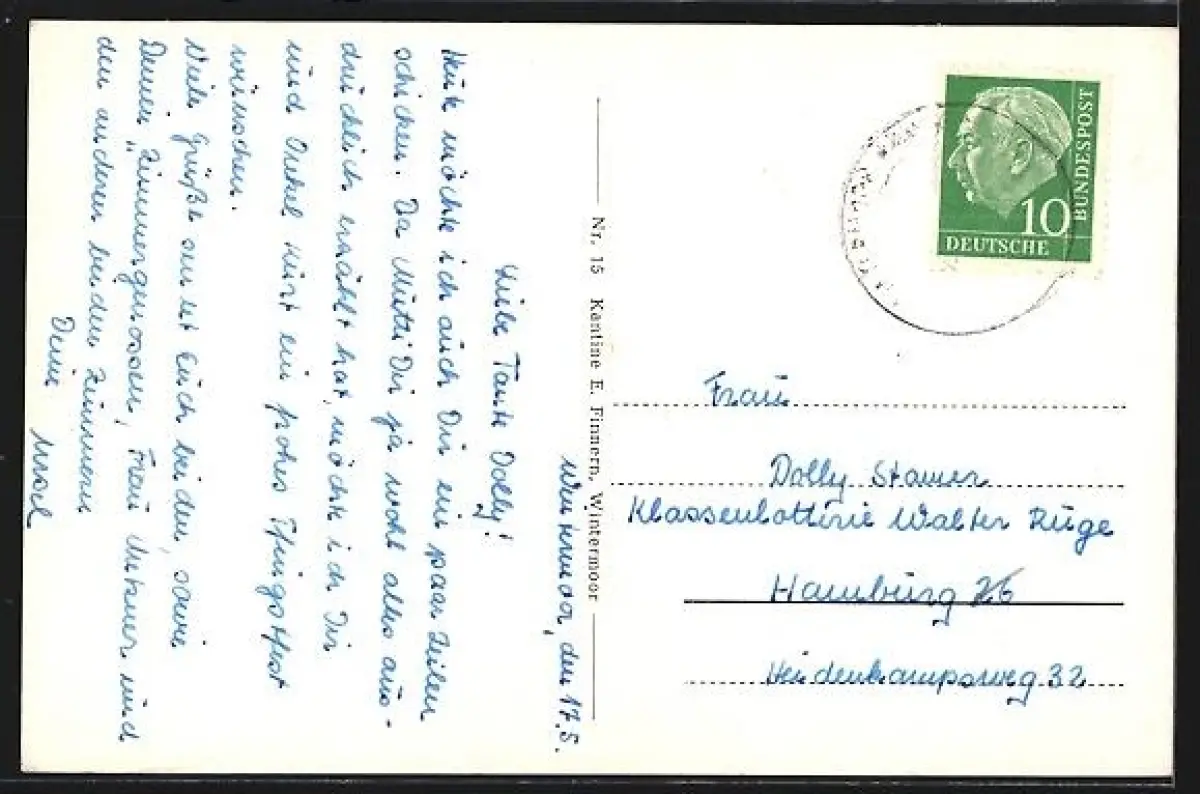 Wintermoor, den 17.5.
Liebe Tante Dolly!
Heute möchte ich auch Dir ein paar Zeilen
schicken. Da Mutti Dir ja wohl alles aus-
drücklich erzählt hat, möchte ich Dir
und Onkel Kurt ein frohes Pfingstfest
wünschen.
Viele Grüße sendet Euch beiden, sowie
Deinen „Zimmergenossen, Frau und
den anderen beiden Zimmern
Deine
Nr. 15 Kantine E. Finnern, Wintermoor
DEUTSCHE
BUNDESPOST
10
Frau
Dolly Stamer
Klassenlotterie Walter Rüge
Hamburg 26
Heidenkampsweg 32